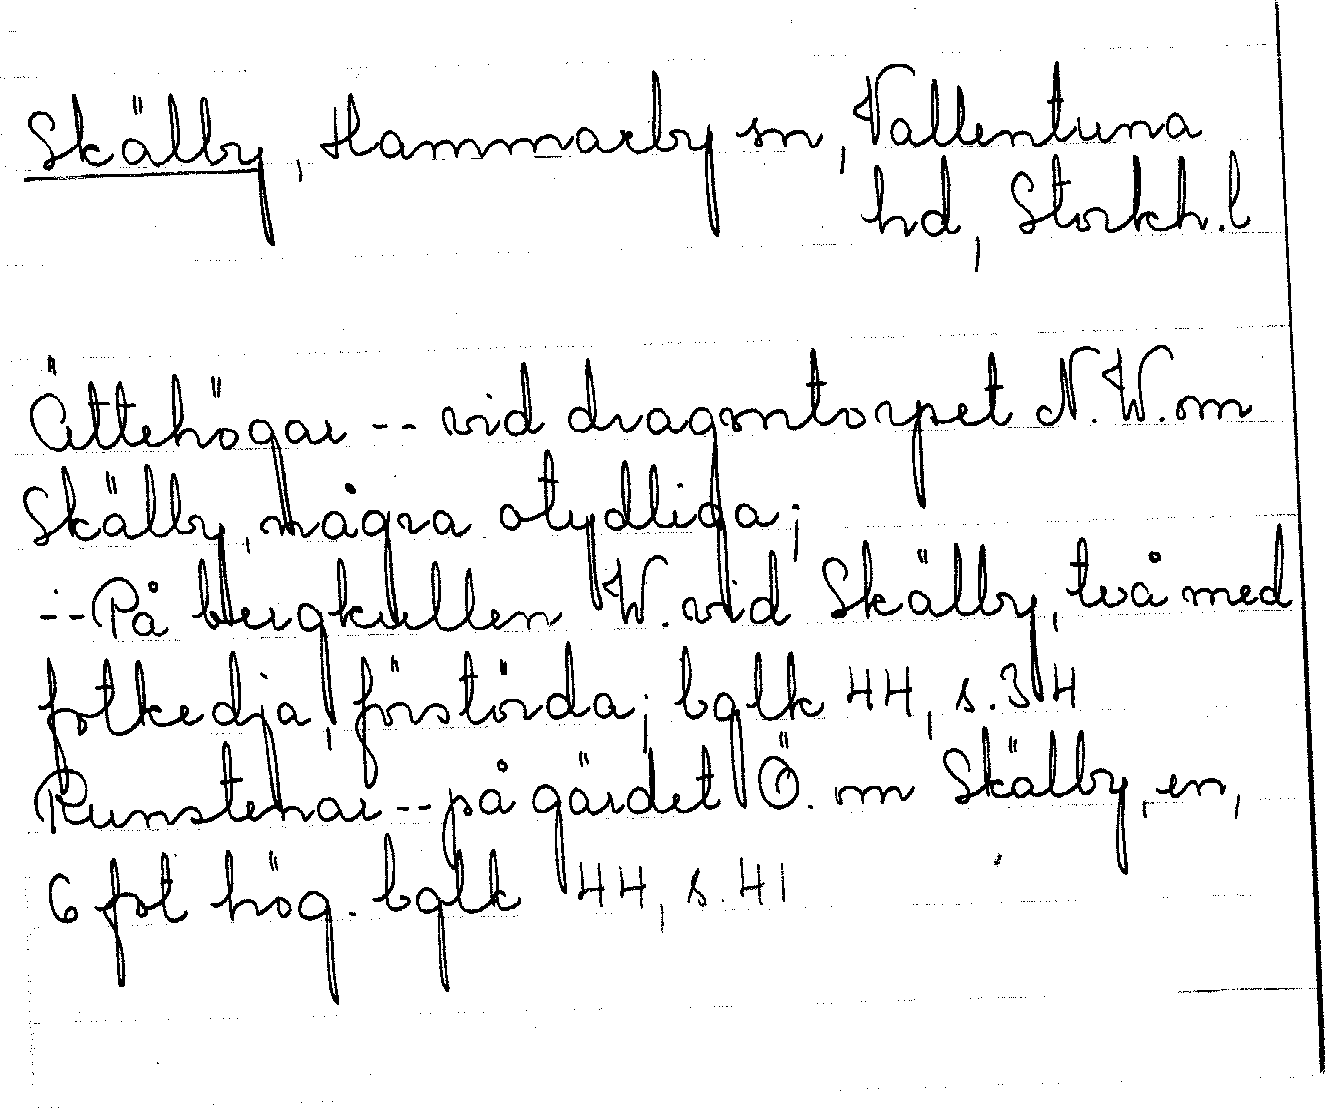 Skälby, Hammarby sn, Vallentuna
hd, Stockh. l
Ättehögar -- vid dragontorpet N.W. om
Skälby, några otydliga;
-- På bergkullen W. vid Skälby, två med
fotkedja, förstörda; bglk 44, s. 34
Runstenar -- på gärdet Ö. om Skälby, en,
6 fot hög. bglk 44, s. 41